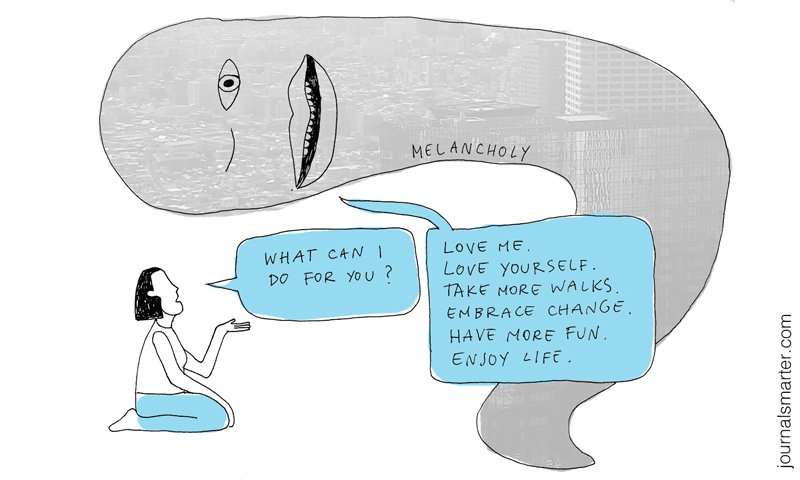 MELANCHOLY
WHAT CAN I
DO FOR YOU?
LOVE ME.
LOVE YOURSELF.
TAKE MORE WALKS.
EMBRACE CHANGE.
HAVE MORE FUN.
ENJOY LIFE.
journalsmarter.com